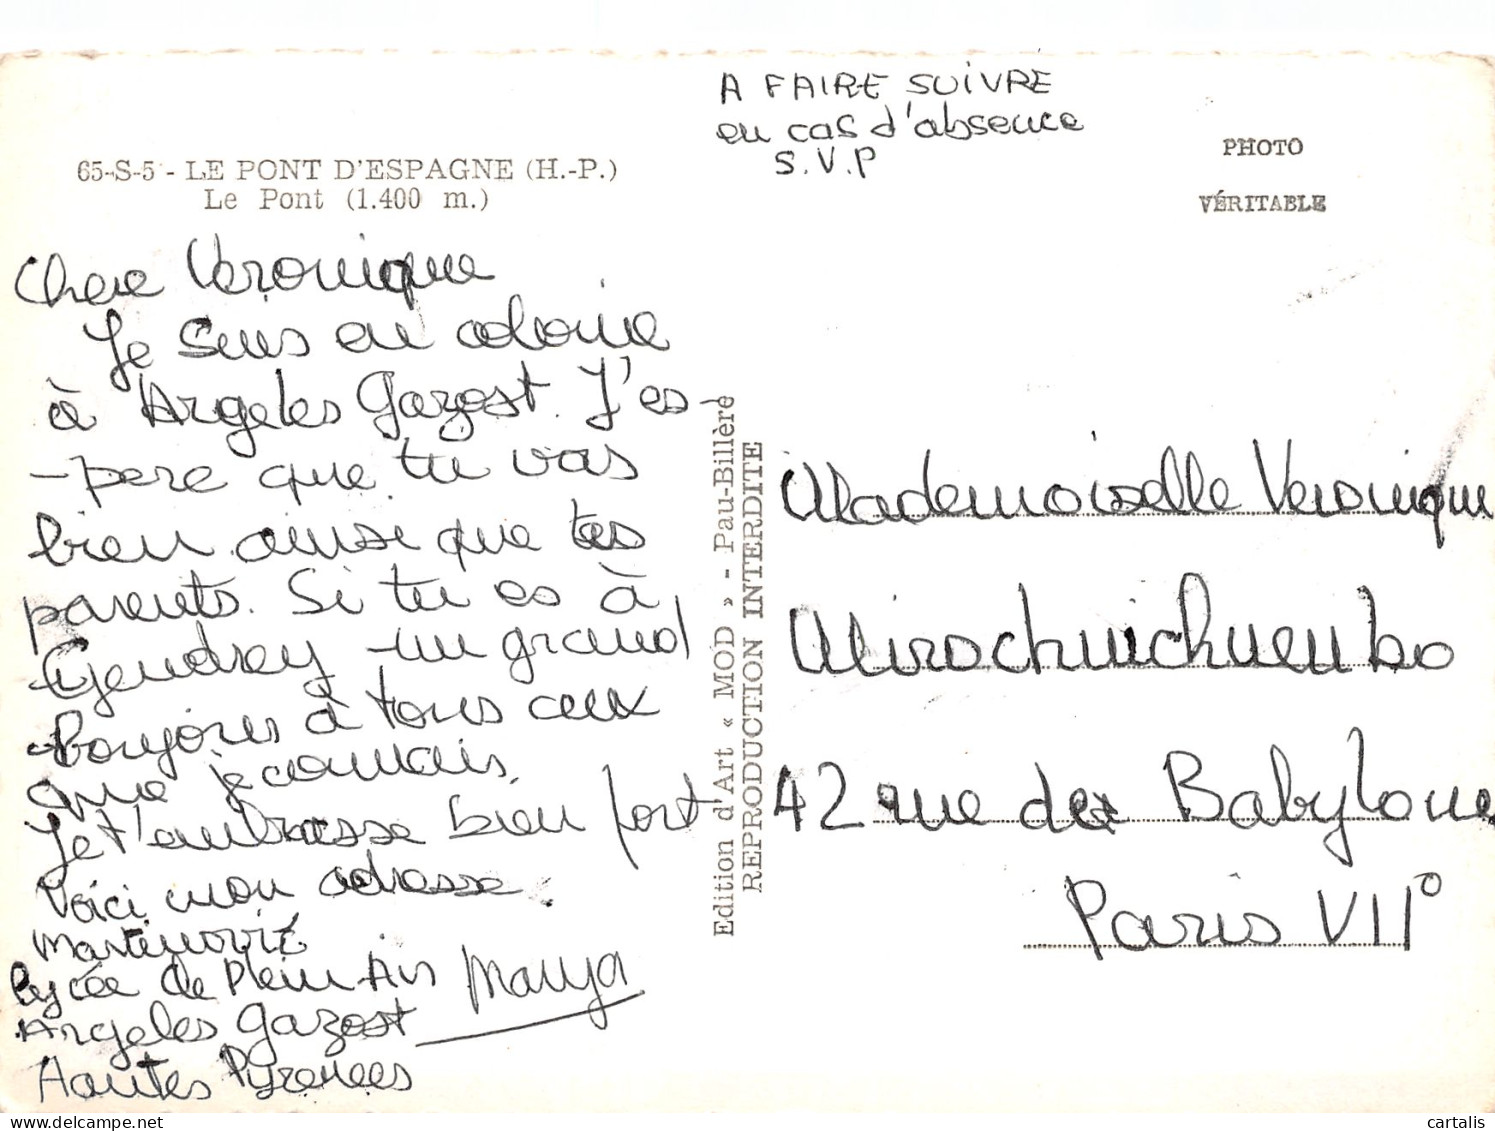 65-S-5 - LE PONT D'ESPAGNE (H.-P.)
Le Pont (1.400 m.)
Chere Veronique
Je suis en colonie
à Argeles Gazost. J'es-
-pere que tu vas
bien ainsi que tes
parents. Si tu es à
Gendrey un grand
bonjours à tous ceux
que je connais.
Je t'embrasse bien fort
Voici mon adresse.
Martinovic
Lycée de Plein Air
Manya
Argeles Gazost
Hautes Pyrenees
Edition d'Art « MOD » - Pau-Billère
REPRODUCTION INTERDITE
A FAIRE SUIVRE
en cas d'absence
S.V.P
PHOTO
VÉRITABLE
Mademoiselle Veronique
Mirochnichuenko
42 rue de Babylone
Paris VII°
cartalis
www.delcampe.net